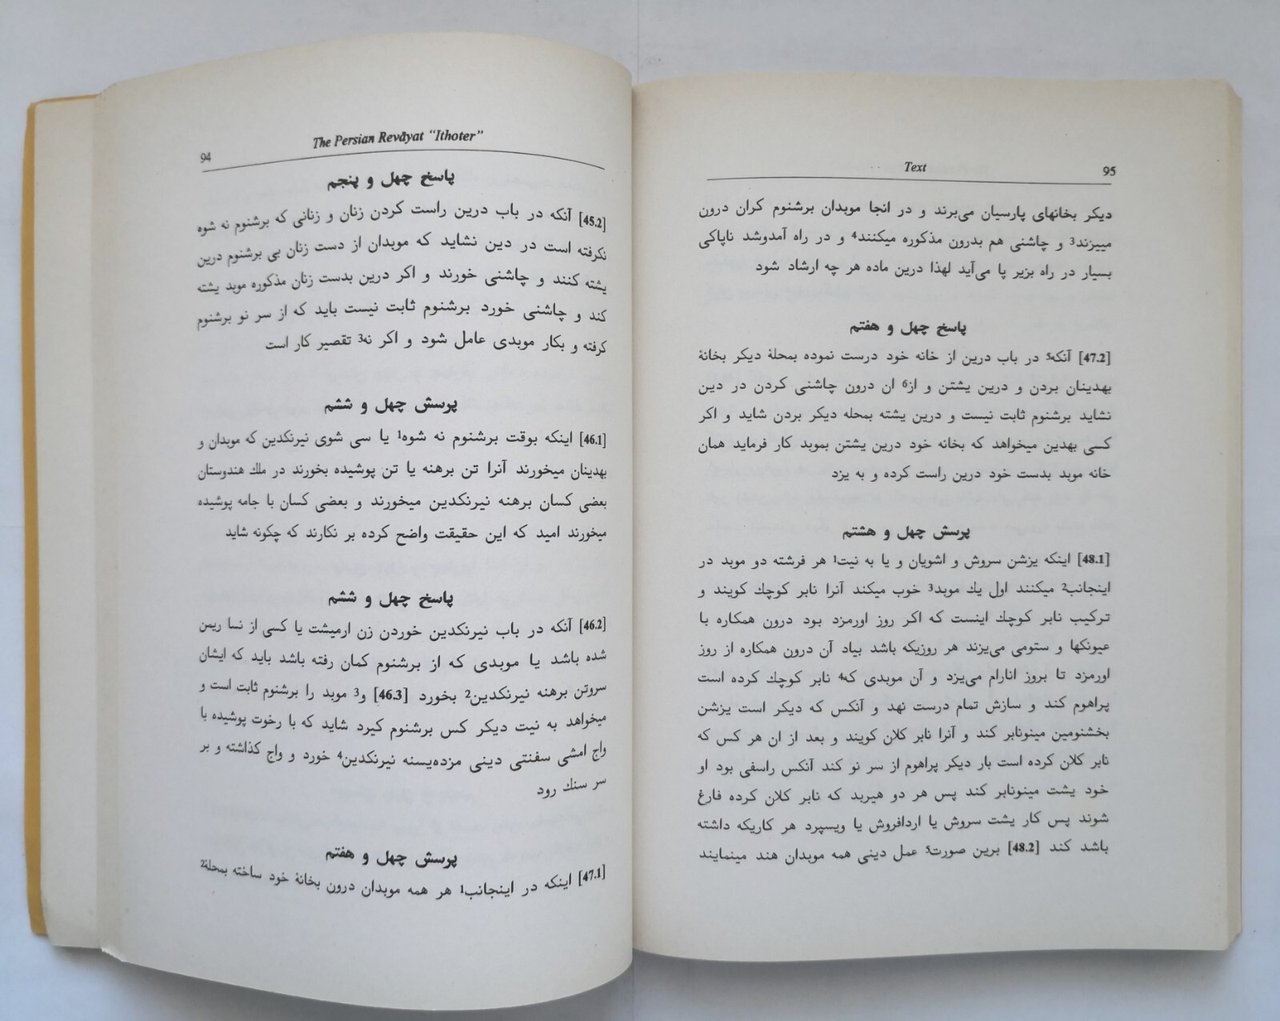 94
The Persian Revāyat "Ithoter"
پاسخ چهل و پنجم
[45.2] آنکه در باب درین راست کردن زنان و زنانی که برشنوم نه شوه
نکرفته است در دین نشاید که موبدان از دست زنان بی برشنوم درین
یشته کنند و چاشنی خورند و اکر درین بدست زنان مذکوره موبد یشته
کند و چاشنی خورد برشنوم ثابت نیست باید که از سر نو برشنوم
کرفته و بکار موبدی عامل شود و اکر نه3 تقصیر کار است
پرسش چهل و ششم
[46.1] اینکه بوقت برشنوم نه شوه1 یا سی شوی نیرنکدین که موبدان و
بهدینان میخورند آنرا تن برهنه یا تن پوشیده بخورند در ملك هندوستان
بعضی کسان برهنه نیرنکدین میخورند و بعضی کسان با جامه پوشیده
میخورند امید که این حقیقت واضح کرده بر نکارند که چکونه شاید
پاسخ چهل و ششم
[46.2] آنکه در باب نیرنکدین خوردن زن ارمیشت یا کسی از نسا ریمن
شده باشد یا موبدی که از برشنوم کمان رفته باشد باید که ایشان
سروتن برهنه نیرنکدین2 بخورد [46.3] و3 موبد را برشنوم ثابت است و
میخواهد به نیت دیکر کس برشنوم کیرد شاید که با رخوت پوشیده با
واج امشی سفنتی دینی مزده‌یسنه نیرنکدین4 خورد و واج کذاشته و بر
سر سنك رود
پرسش چهل و هفتم
[47.1] اینکه در اینجانب1 هر همه موبدان درون بخانهٔ خود ساخته بمحلهٔ2
Text
95
دیکر بخانهای پارسیان می‌برند و در انجا موبدان برشنوم کران درون
مییزند3 و چاشنی هم بدرون مذکوره میکنند4 و در راه آمدوشد ناپاکی
بسیار در راه بزیر پا می‌آید لهذا درین ماده هر چه ارشاد شود
پاسخ چهل و هفتم
[47.2] آنکه5 در باب درین از خانه خود درست نموده بمحلهٔ دیکر بخانهٔ
بهدینان بردن و درین یشتن و از6 ان درون چاشنی کردن در دین
نشاید برشنوم ثابت نیست و درین یشته بمحله دیکر بردن شاید و اکر
کسی بهدین میخواهد که بخانه خود درین یشتن بموبد کار فرماید همان
خانه موبد بدست خود درین راست کرده و به یزد
پرسش چهل و هشتم
[48.1] اینکه یزشن سروش و اشویان و یا به نیت1 هر فرشته دو موبد در
اینجانب2 میکنند اول یك موبد3 خوب میکند آنرا نابر کوچك کویند و
ترکیب نابر کوچك اینست که اکر روز اورمزد بود درون همکاره با
عیونکها و ستومی می‌یزند هر روزیکه باشد بیاد آن درون همکاره از روز
اورمزد تا بروز انارام می‌یزد و آن موبدی که4 نابر کوچك کرده است
پراهوم کند و سازش تمام درست نهد و آنکس که دیکر است یزشن
بخشنومین مینونابر کند و آنرا نابر کلان کویند و بعد از ان هر کس که
نابر کلان کرده است بار دیکر پراهوم از سر نو کند آنکس راسفی بود او
خود یشت مینونابر کند پس هر دو هیربد که نابر کلان کرده فارغ
شوند پس کار یشت سروش یا اردافروش یا ویسپرد هر کاریکه داشته
باشد کند [48.2] برین صورت5 عمل دینی همه موبدان هند مینمایند